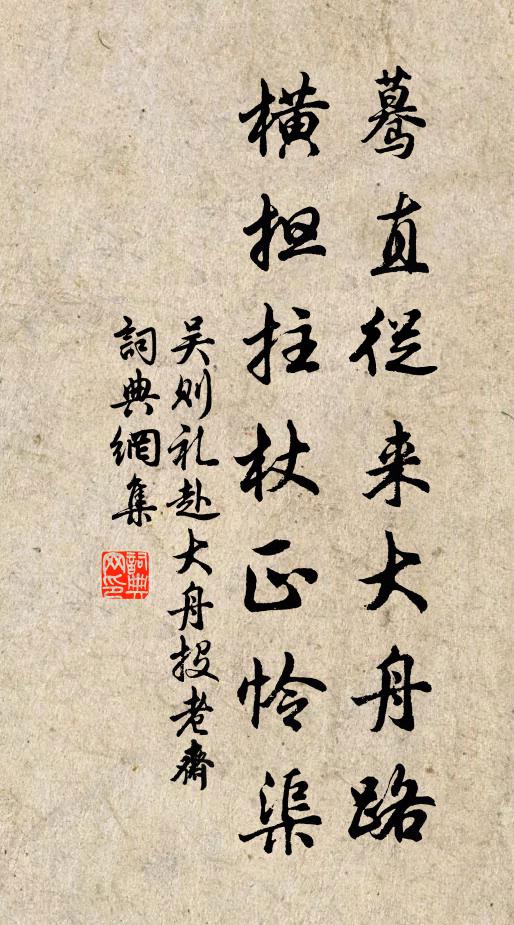 蓦直從来大舟路
横担拄杖正怜渠
吴则礼赴大舟投老斋
詞典網集
詞典网印